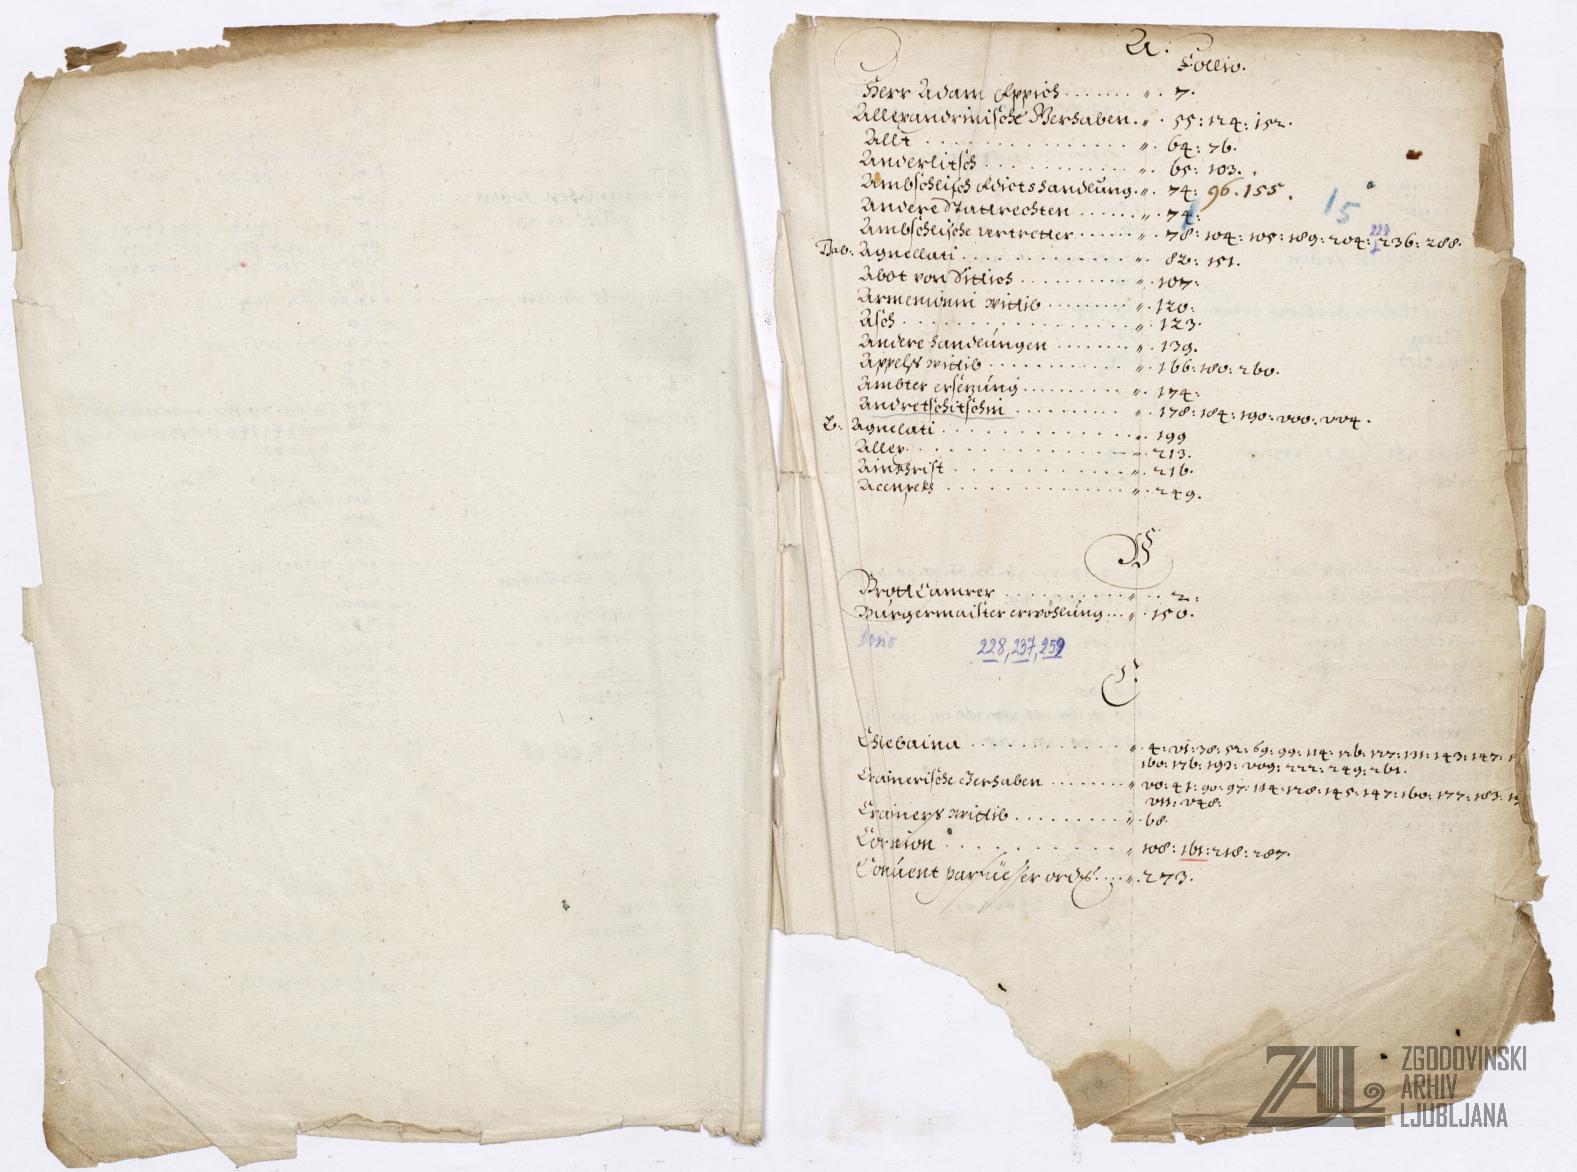 A:
Follio.
Herr Adam Eppich . . . . . . . „ . 7.
Allexandrinische Gerhaben . „ . 55: 124: 152.
Allt . . . . . . . . . . „ . 64: 76.
Anderlitsch . . . . . . . . . . „ . 65: 103.
Ambschlisch Edictshandlung . „ . 74: 96. 155.
Andere Stattrechten . . . . . . „ . 74:
15
Ambschlische vertretter . . . . . „ . 78: 104: 105: 189: 204: 236: 288.
224
Bab: Agnellati . . . . . . . . . . „ 82: 151.
Abbt von Sittich . . . . . . . . „ . 107:
wittib . . . . . . „ . 120:
Asch . . . . . . . . . . „ . 123.
Andere handlungen . . . . . . . „ . 139.
Appels wittib . . . . . . . . . . „ . 166: 180: 260.
Ambter ersezung . . . . . . . . „ . 174:
Andretschitschin . . . . . . . . „ . 178: 184: 190: 200: 204.
B: Agnelati . . . . . . . . . . „ . 199
Aller . . . . . . . . . . „ . 213.
Amthrist . . . . . . . . . . „ . 216.
. . . . . . . . . . „ . 249.
B
Brott Camrer . . . . . . . . . . „ . . 2:
Burgermaister erwöhlung . . . „ . 150.
228, 237, 259
C.
Chlebaina . . . . . . . . . . „ . 4: 21: 38: 52: 69: 99: 114: 126: 127: 131: 143: 147:
160: 176: 193: 209: 222: 249: 261.
Crainerische Gerhaben . . . . . . „ 20: 41: 90: 97: 114: 128: 145: 147: 160: 177: 183:
211: 248:
Crainers wittib . . . . . . . . . . „ . 68.
Corvion . . . . . . . . . . „ 108: 161: 218: 287.
Convent parfüesser ords. . . . „ . 273.
ZAL ZGODOVINSKI
ARHIV
LJUBLJANA